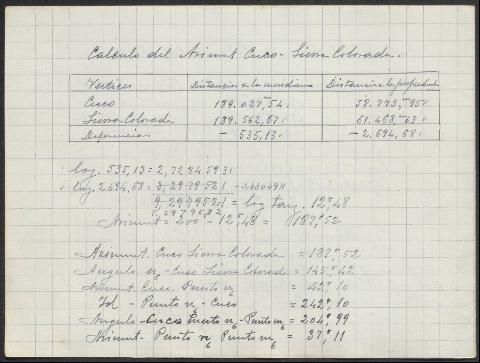 Calculo del Azimut Cuco-Sierra Colorada.
Vertices Distancias a la meridiana Distancia a la perpendicular
Cuco 189.027,54 58.773,95
Sierra Colorada 189.562,67 61.468,63
Diferencias - 535,13 - 2.694,68
log. 535,13 = 2,7284593
log. 2.694,68 = 3,4304911
9,2979521 = log tang. 12,48
Azimut = 200 - 12,48 = 187,52
Azimut. Cuco Sierra Colorada = 187,52
Angulo n6 - Cuco Sierra Colorada = 145,42
Azimut Cuco. Punto n6 = 42,10
Id - Punto n6 - Cuco = 242,10
Angulo - Cuco Punto n6 - Punto n6 = 204,99
Azimut - Punto n6 Punto n6 = 37,11